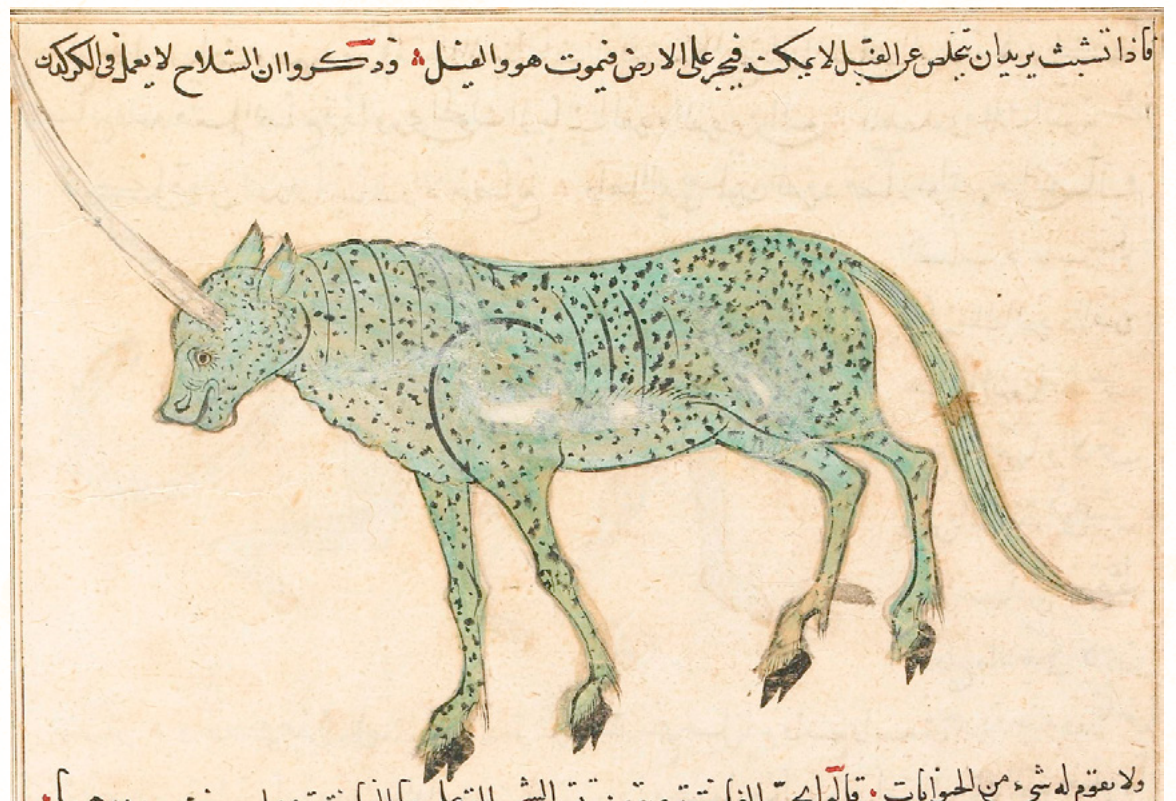 فاذا تشبث يريد ان يتخلص عن الفيل لا يمكنه فيخر على الارض فيموت هو والفيل وذكروا ان السلاح لا يعمل فى الكركدن
ولا يقوم له شىء من الحيوانات قالوا